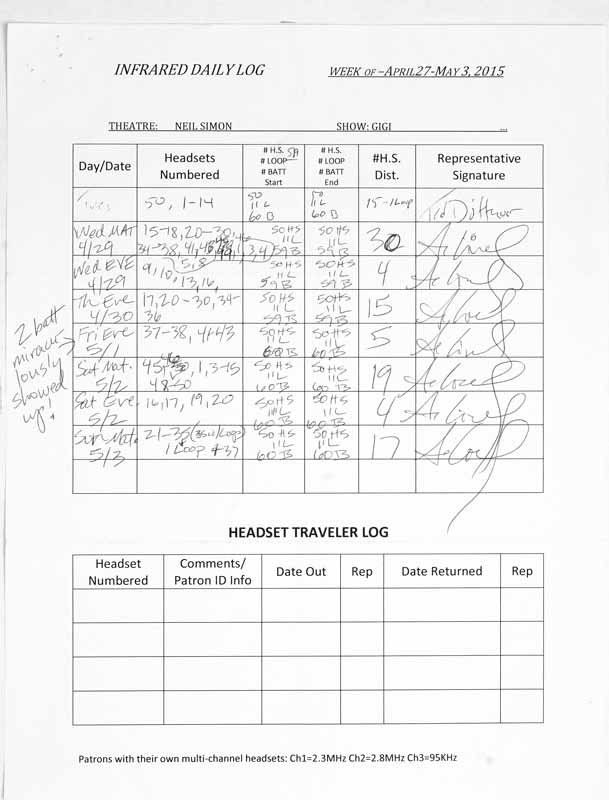 INFRARED DAILY LOG WEEK OF –APRIL27-MAY 3, 2015
THEATRE: NEIL SIMON SHOW: GIGI ...
Day/Date Headsets Numbered # H.S. 59 # LOOP # BATT Start # H.S. # LOOP # BATT End #H.S. Dist. Representative Signature
Tues 50, 1-14 50 11 L 60 B 50 11 L 60 B 15-1Loop
Wed MAT 4/29 15-18, 20-30, 34-38, 41, 1, 3, 4 50HS 11 L 59 B 50 HS 11 L 59 B 30
Wed EVE 4/29 5, 8 9, 10, 13, 16, 50HS 11 L 59 B 50HS 11 L 59 B 4
Th Eve 4/30 17, 20-30, 34-36 50HS 11 L 59 B 50HS 11 L 59 B 15
Fri Eve 5/1 37-38, 41-43 50HS 11 L 60 B 50HS 11 L 60 B 5
Sat Mat. 5/2 45, 1, 3-15 48-50 50HS 11 L 60 B 50HS 11 L 60 B 19
Sat Eve. 5/2 16, 17, 19, 20 50HS 11 L 60 B 50HS 11 L 60 B 4
Sun Mat. 5/3 21-35 (35 w/Loop) 1 Loop +37 50HS 11 L 60 B 50HS 11 L 60 B 17
2 batt
miracu-
lously
showed
up!
HEADSET TRAVELER LOG
Headset Numbered Comments/ Patron ID Info Date Out Rep Date Returned Rep
Patrons with their own multi-channel headsets: Ch1=2.3MHz Ch2=2.8MHz Ch3=95KHz